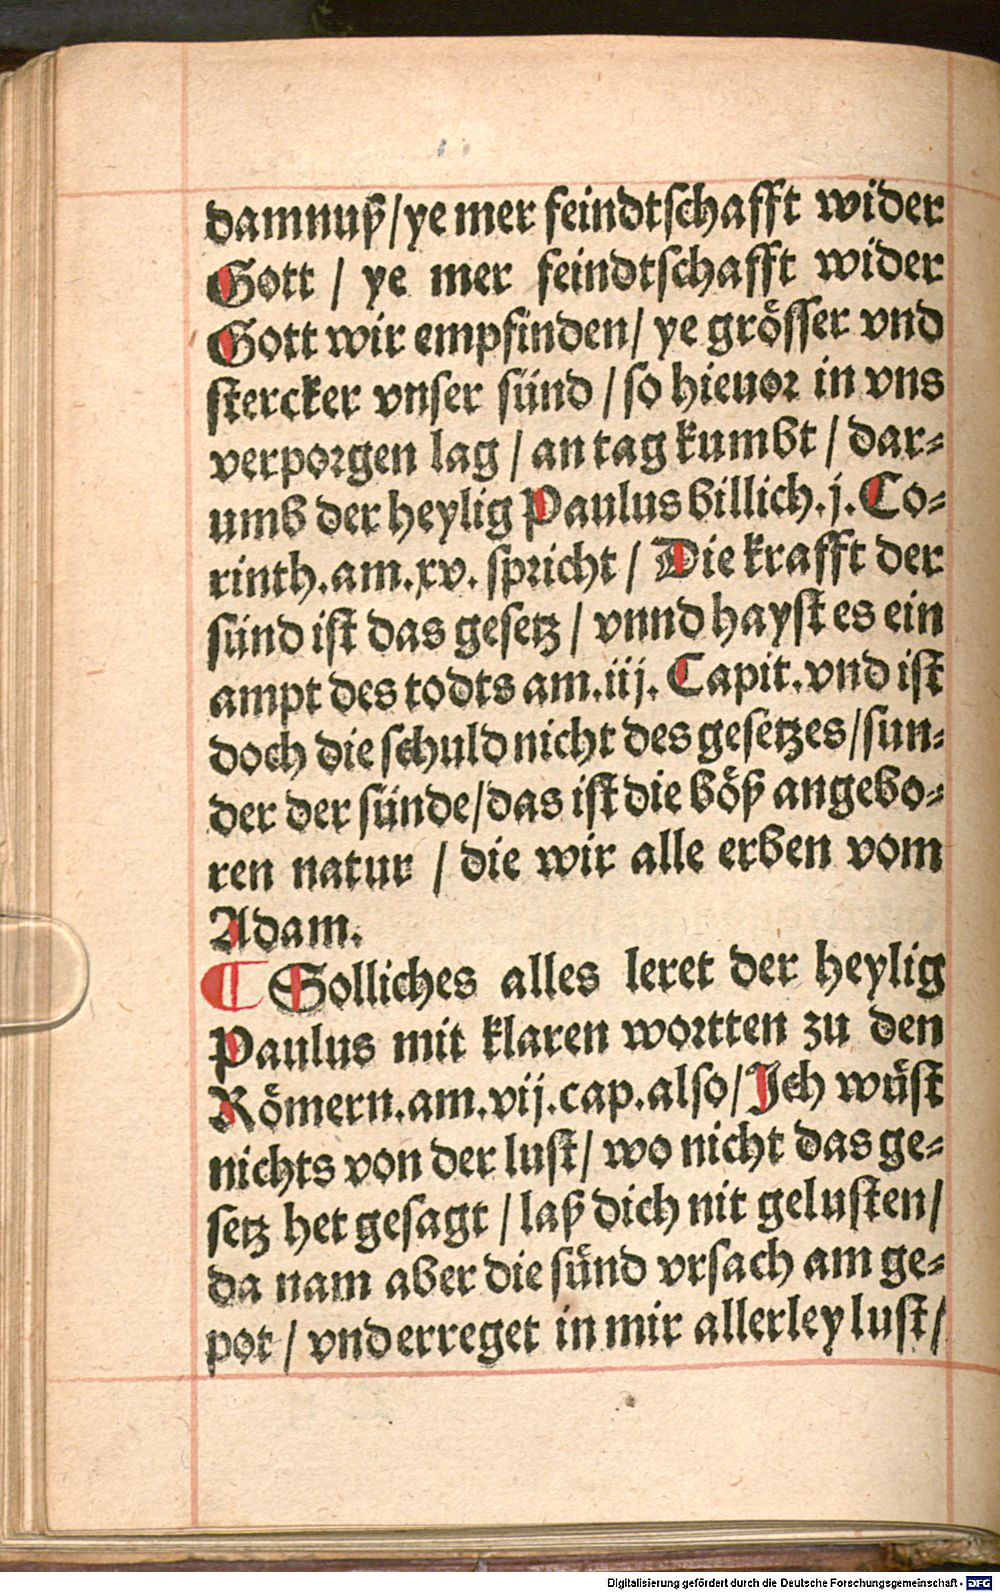 damnuß/ye mer feindtschafft wider
Gott / ye mer feindtschafft wider
Gott wir empfinden/ ye grösser vnd
stercker vnser sünd / so hieuor in vns
verporgen lag / an tag kumbt / dar-
umb der heylig Paulus billich.j. Co-
rinth.am.xv. spricht / Die krafft der
sünd ist das gesetz / vnnd hayst es ein
ampt des todts am.iij. Capit.vnd ist
doch die schuld nicht des gesetzes/sun-
der der sünde/das ist die böß angebo-
ren natur / die wir alle erben vom
Adam.
¶ Solliches alles leret der heylig
Paulus mit klaren wortten zu den
Römern.am.vij.cap.also/Jch wüst
nichts von der lust/ wo nicht das ge-
setz het gesagt / laß dich nit gelusten/
da nam aber die sünd vrsach am ge-
pot / vnd erreget in mir allerley lust/
Digitalisierung gefördert durch die Deutsche Forschungsgemeinschaft - DFG